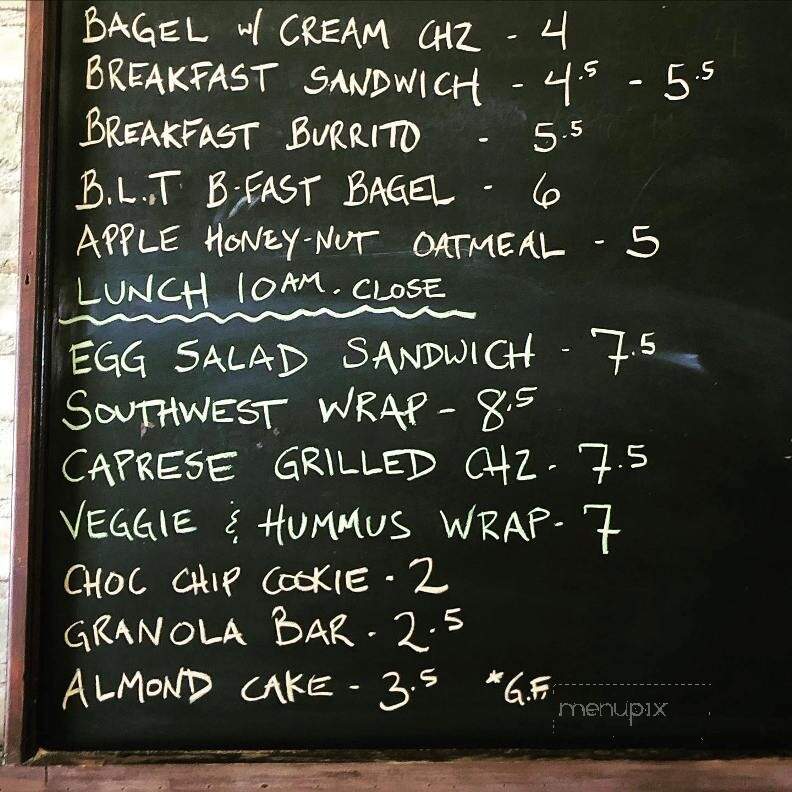 BAGEL w/ CREAM CHZ - 4
BREAKFAST SANDWICH - 4.5 - 5.5
BREAKFAST BURRITO - 5.5
B.L.T B-FAST BAGEL - 6
APPLE HONEY-NUT OATMEAL - 5
LUNCH 10AM. CLOSE
EGG SALAD SANDWICH - 7.5
SOUTHWEST WRAP - 8.5
CAPRESE GRILLED CHZ - 7.5
VEGGIE & HUMMUS WRAP - 7
CHOC CHIP COOKIE - 2
GRANOLA BAR - 2.5
ALMOND CAKE - 3.5 *G.F.
menupix